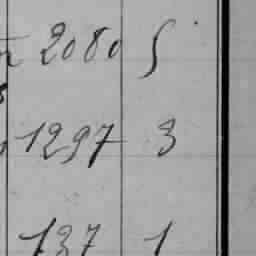 2080 5
1297 3
137 1